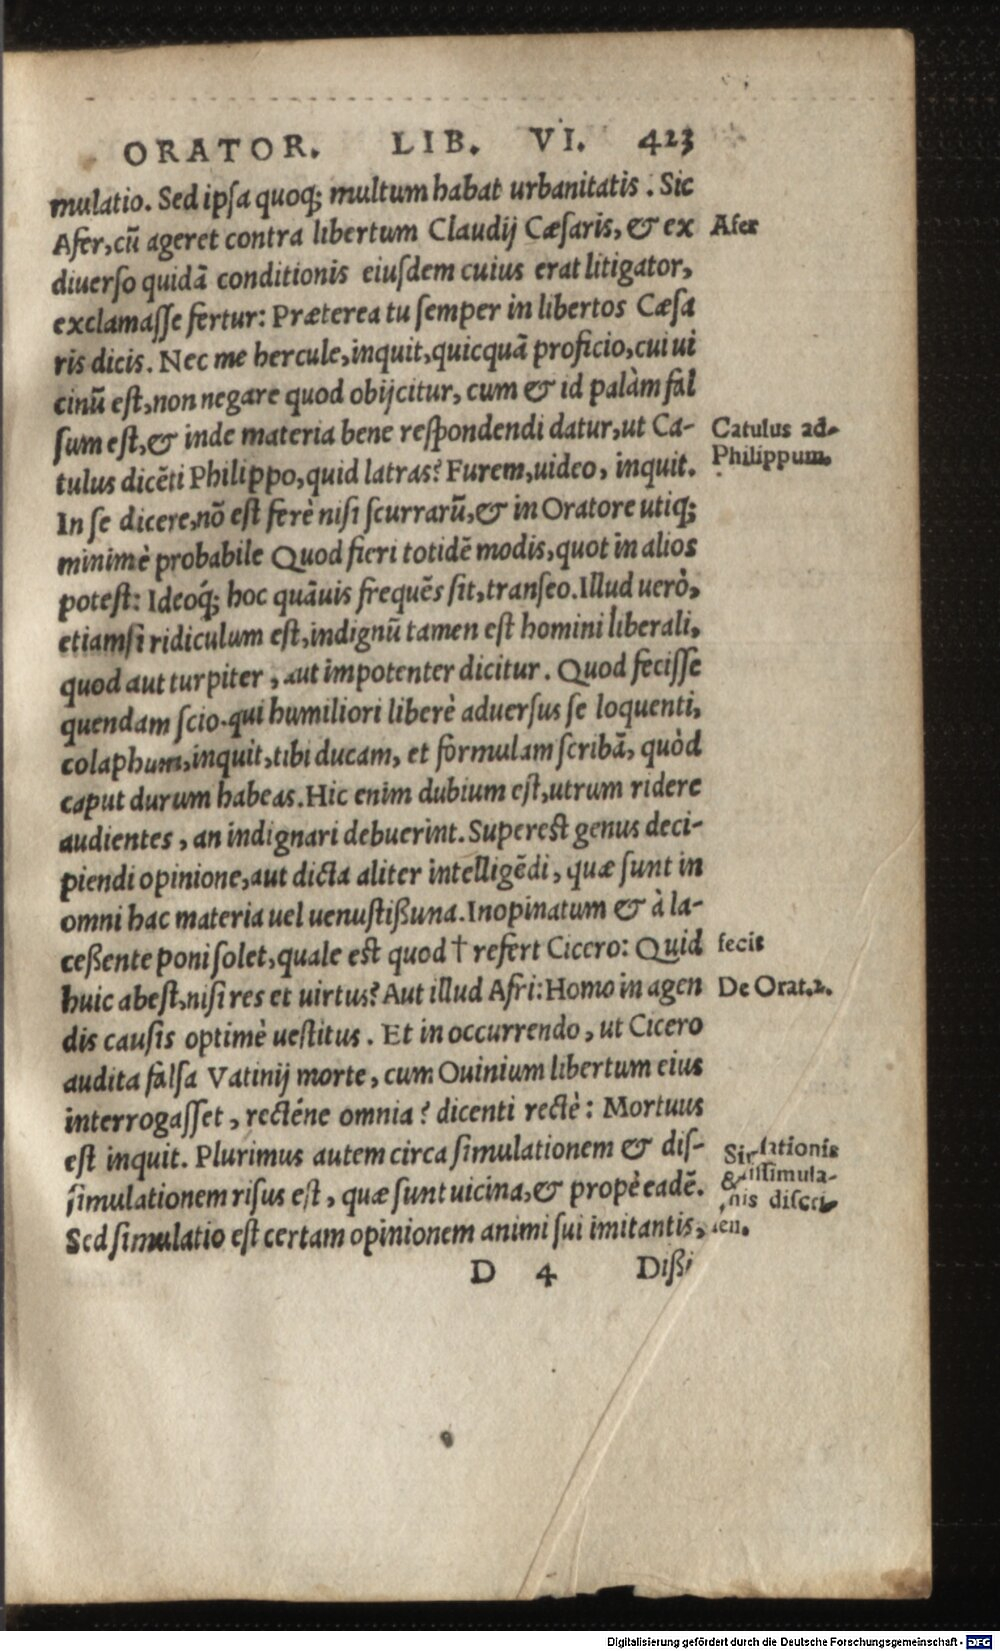 ORATOR. LIB. VI. 423
mulatio. Sed ipsa quoq; multum habat urbanitatis. Sic
Afer, cũ ageret contra libertum Claudij Cæsaris, & ex
Afer
diuerso quidã conditionis eiusdem cuius erat litigator,
exclamasse fertur: Præterea tu semper in libertos Cæsa
ris dicis. Nec me hercule, inquit, quicquã proficio, cui ui
cinũ est, non negare quod obijcitur, cum & id palàm fal
sum est, & inde materia bene respondendi datur, ut Ca-
Catulus ad
tulus dicẽti Philippo, quid latras? Furem, uideo, inquit.
Philippum.
In se dicere, nõ est ferè nisi scurrarũ, & in Oratore utiq;
minimè probabile Quod fieri totidẽ modis, quot in alios
potest: Ideoq́; hoc quãuis frequẽs sit, transeo. Illud uerò,
etiamsi ridiculum est, indignũ tamen est homini liberali,
quod aut turpiter, aut impotenter dicitur. Quod fecisse
quendam scio. qui humiliori liberè aduersus se loquenti,
colaphum, inquit, tibi ducam, et formulam scribã, quòd
caput durum habeas. Hic enim dubium est, utrum ridere
audientes, an indignari debuerint. Superest genus deci-
piendi opinione, aut dicta aliter intelligẽdi, quæ sunt in
omni hac materia uel uenustißuna. Inopinatum & à la-
ceßente poni solet, quale est quod † refert Cicero: Quid
fecit
huic abest, nisi res et uirtus? Aut illud Afri: Homo in agen
De Orat. 2.
dis causis optimè uestitus. Et in occurrendo, ut Cicero
audita falsa Vatinij morte, cum Ouinium libertum eius
interrogasset, recténe omnia? dicenti rectè: Mortuus
est inquit. Plurimus autem circa simulationem & dis-
simulationem risus est, quæ sunt uicina, & propè eadẽ.
Sed simulatio est certam opinionem animi sui imitantis,
D 4 Dißi
Digitalisierung gefördert durch die Deutsche Forschungsgemeinschaft - DFG